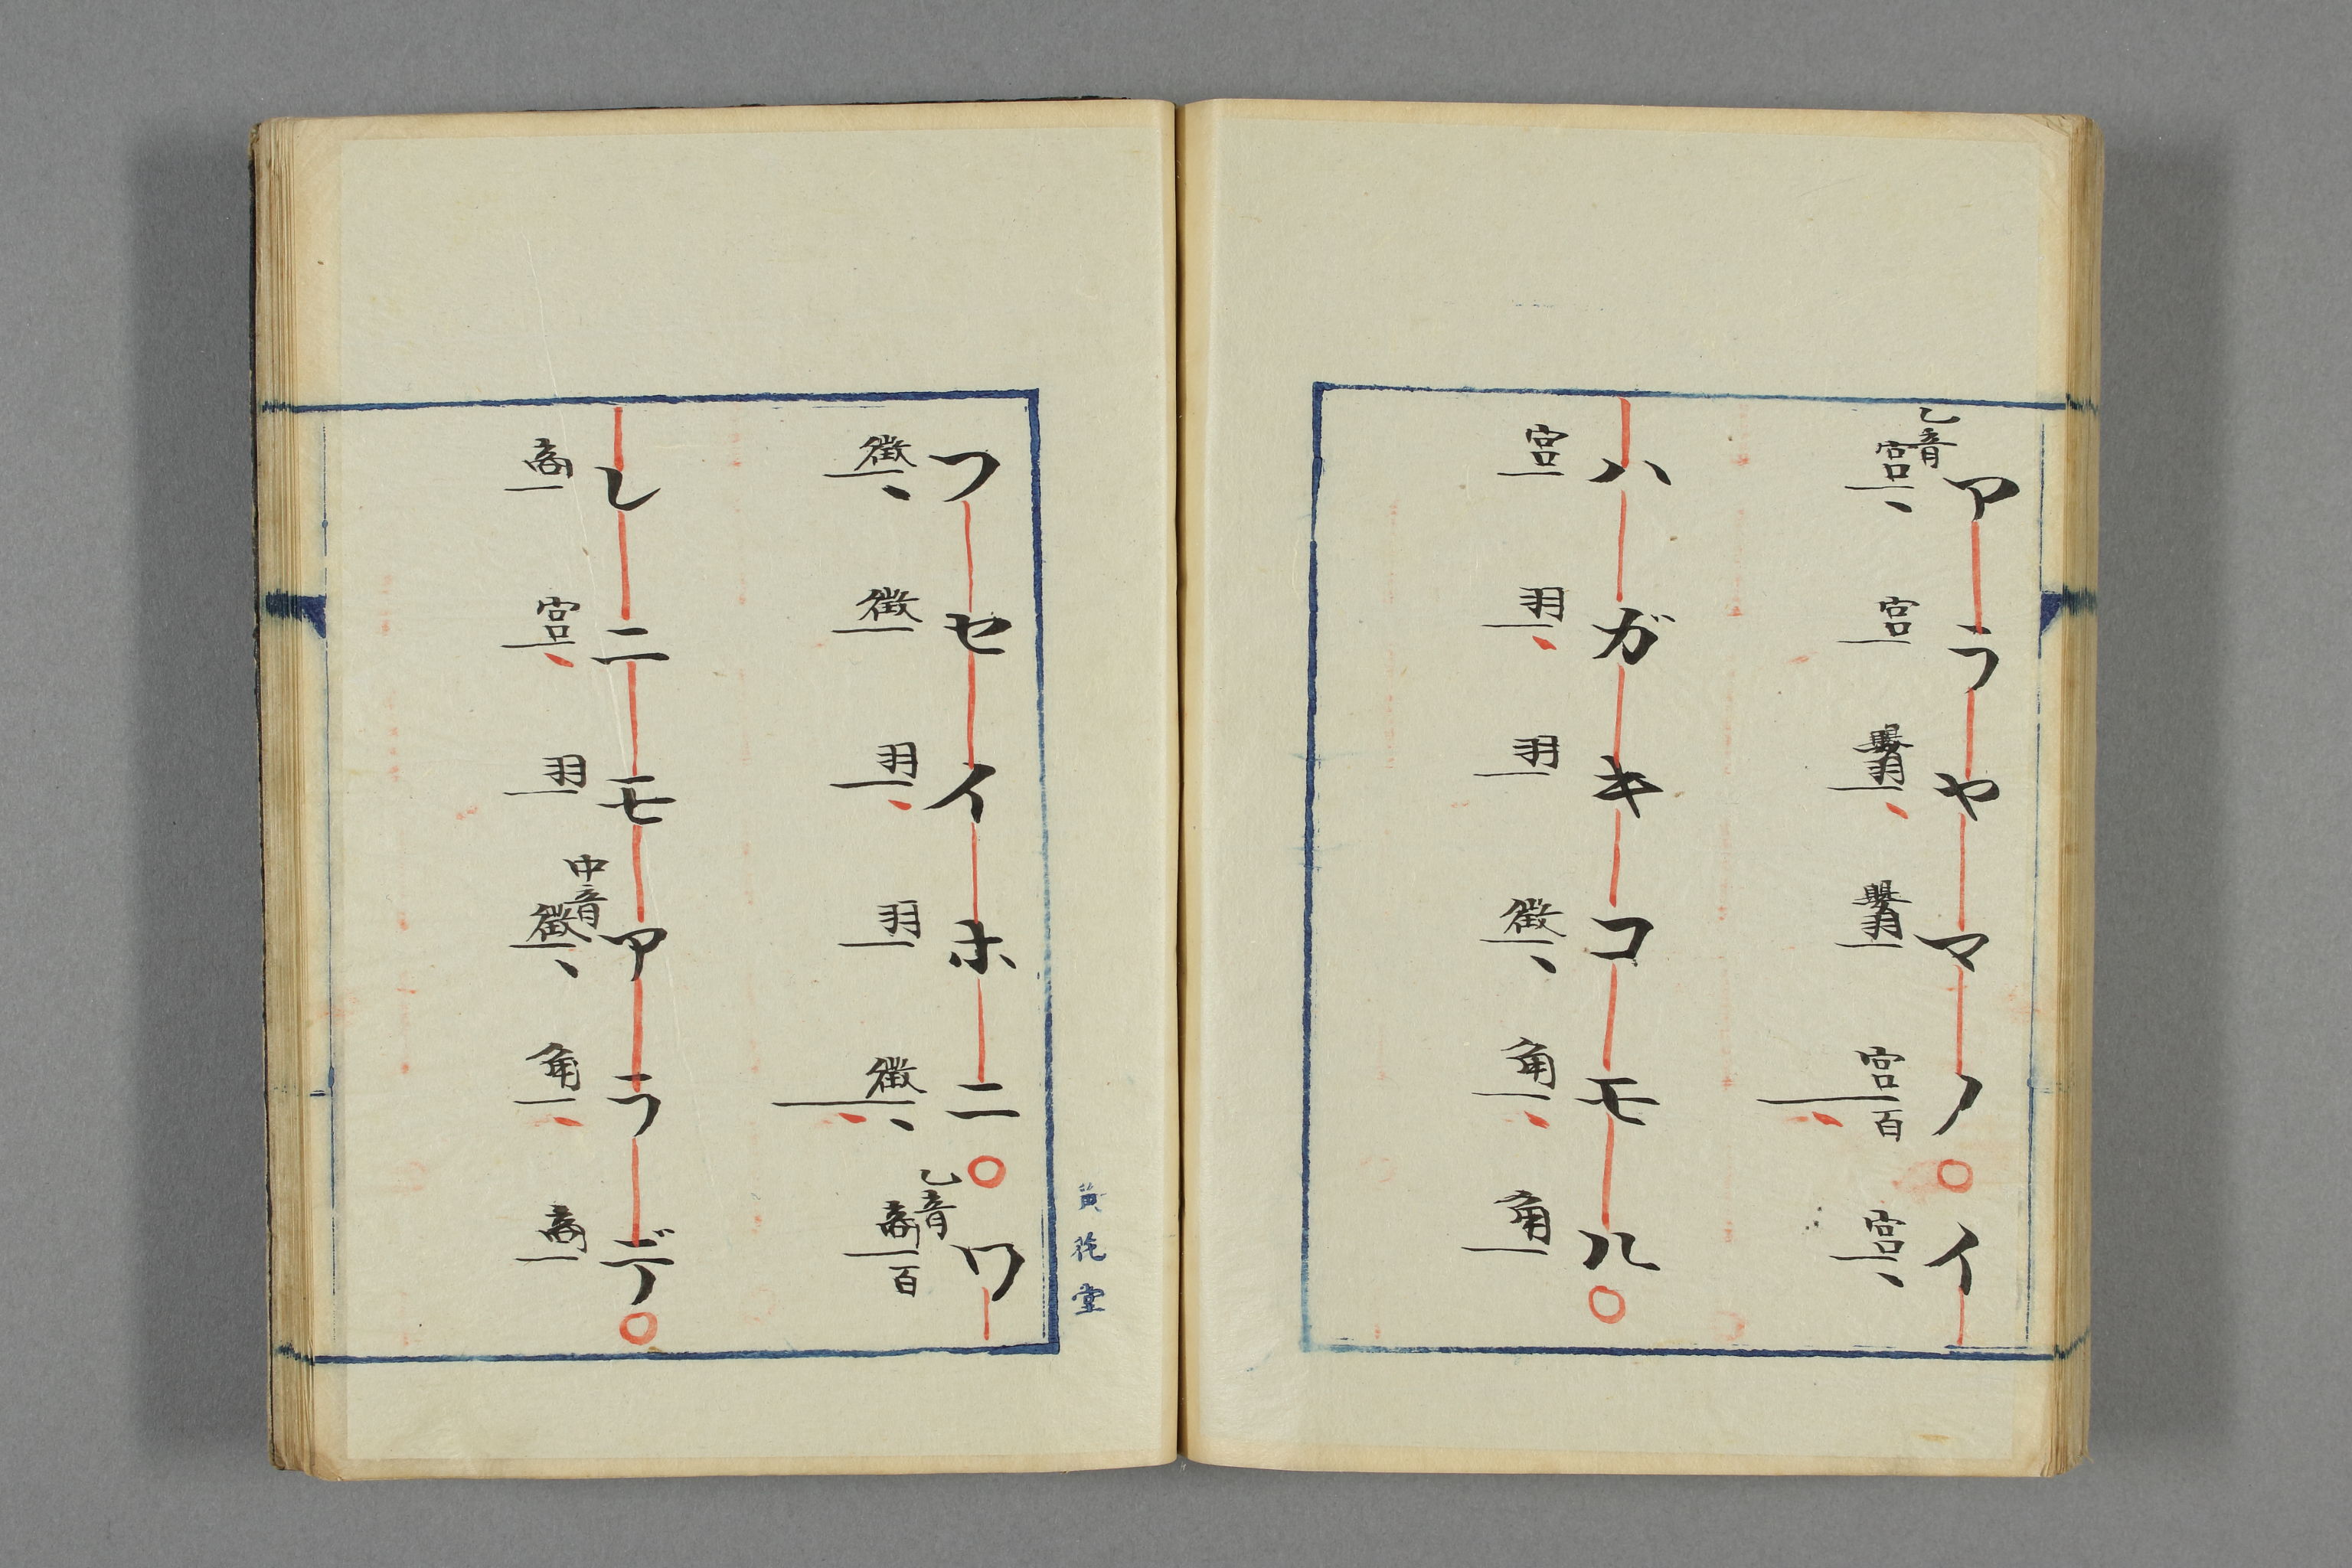 アラヤマノ○イ
乙音
宮、宮嬰羽、嬰羽宮、百宮、
ハガキコモル○
宮羽、羽徴、角、角
フセイホニ○ワ
乙音
徴、徴羽、羽徴、、商百
レニモアラデ○
中音
商宮、羽徴、角、商